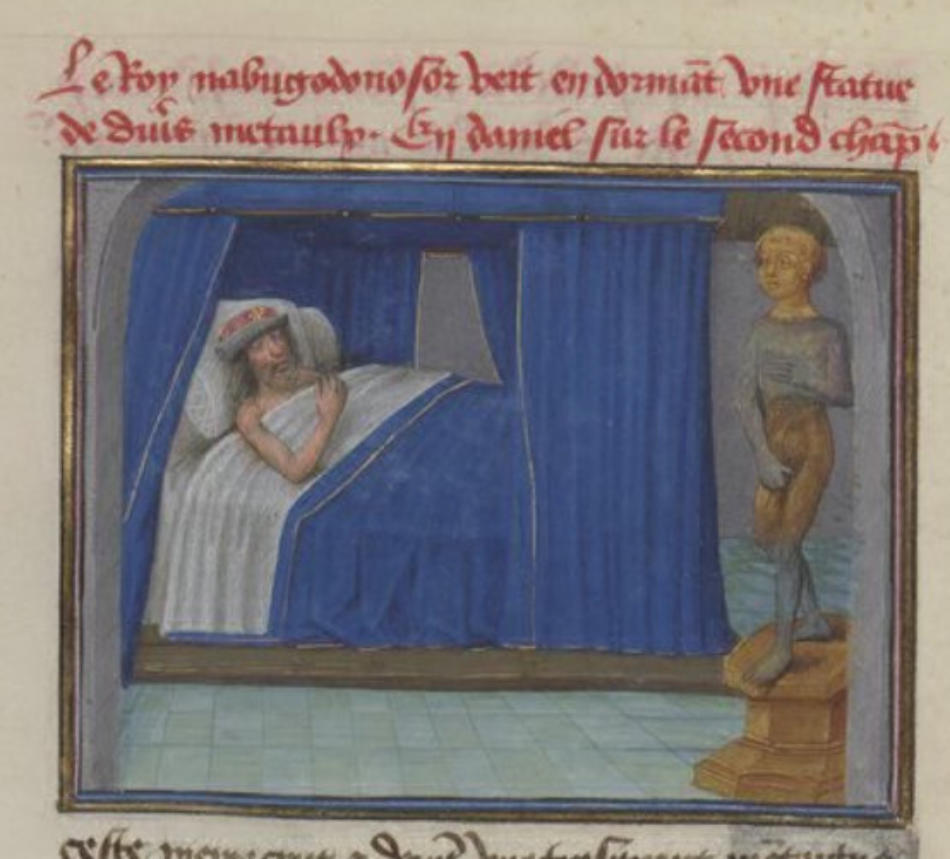 Le Roy nabugodonosor veit en dormāt vne statue
de diuˢ̄ metaulx. En daniel sur le second chap̄
ceste